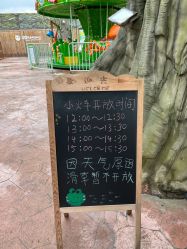 WELCOME
小火车开放时间
12:00~12:30
13:00~13:30
14:00~14:30
15:00~15:30
因天气原因
滑草暂不开放